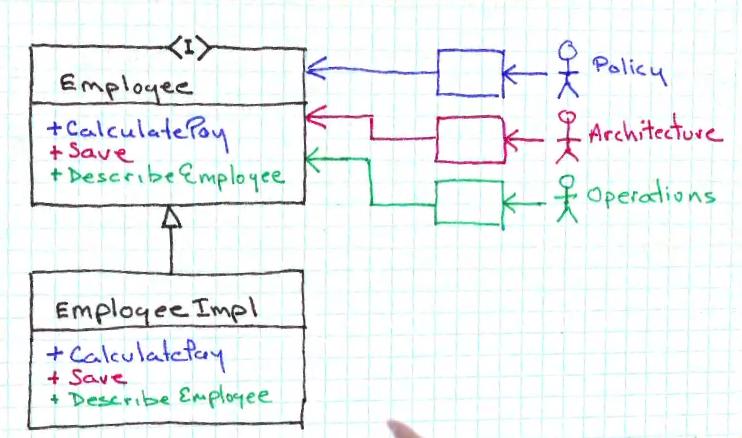 I
Employee
+ CalculatePay
+ Save
+ DescribeEmployee
Policy
Architecture
Operations
EmployeeImpl
+ CalculatePay
+ Save
+ Describe Employee